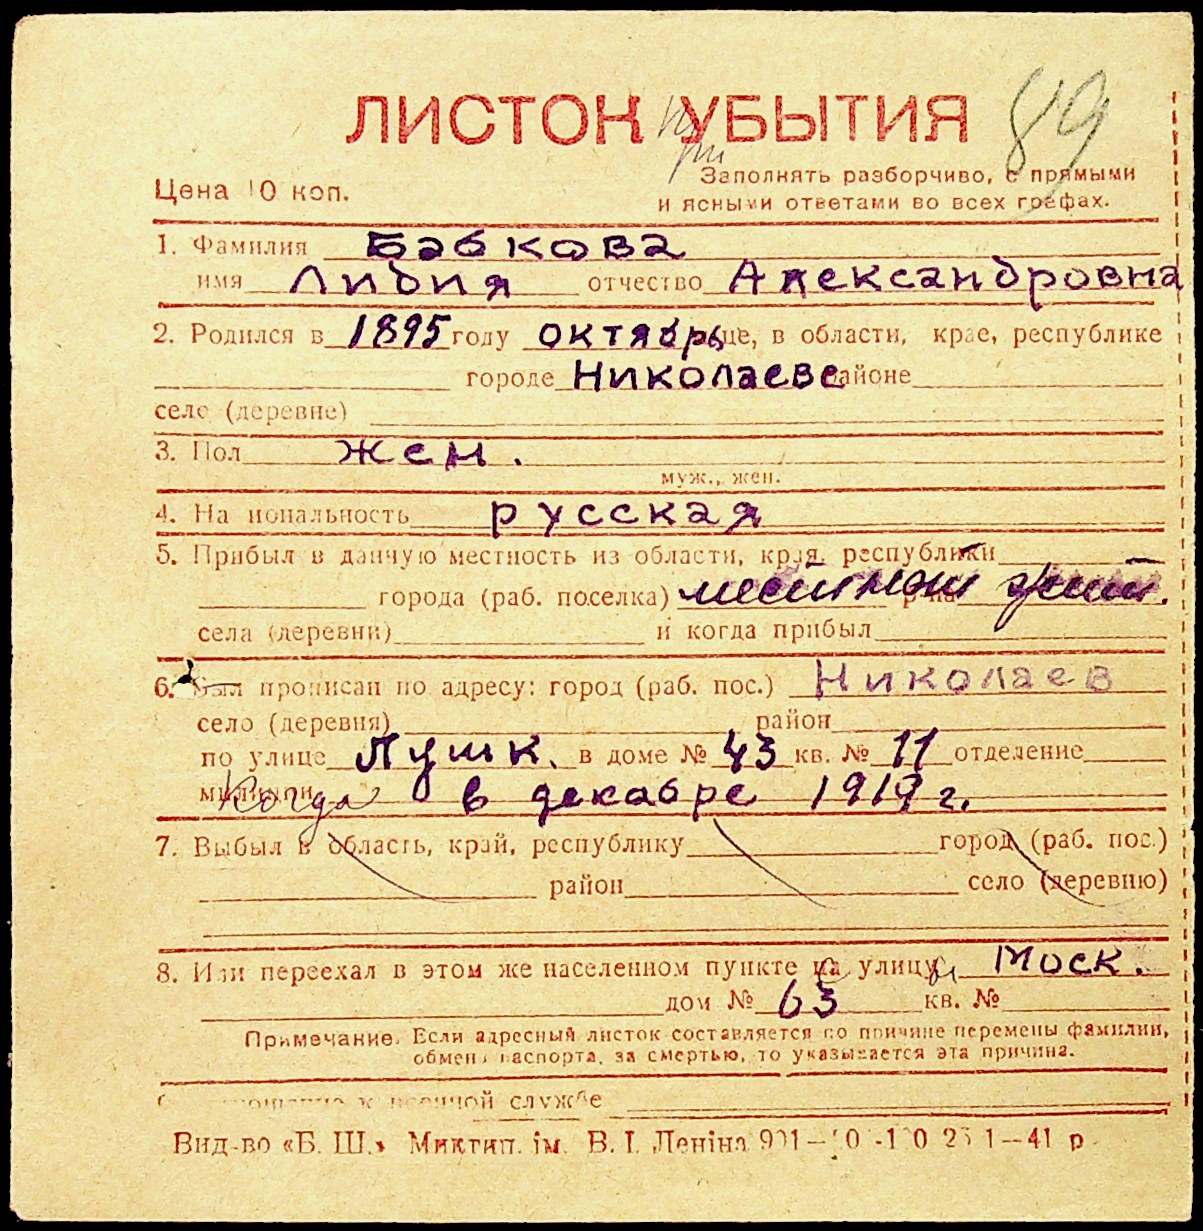 ЛИСТОК УБЫТИЯ 89
Цена 10 коп.
Заполнять разборчиво, с прямыми
и ясными ответами во всех графах.
1. Фамилия Бабкова
имя Лидия отчество Александровна
2. Родился в 1895 году октябрь це, в области, крае, республике
городе Николаеве районе
село (деревне)
3. Пол жен.
муж., жен.
4. Национальность русская
5. Прибыл в данную местность из области, края, республики
города (раб. поселка) местный р-на жит.
села (деревни) и когда прибыл
6. Был прописан по адресу: город (раб. пос.) Николаев
село (деревня) район
по улице Пушк. в доме № 43 кв. № 11 отделение
милиции Когда в декабре 1919 г.
7. Выбыл в область, край, республику город (раб. пос.)
район село (деревню)
8. Или переехал в этом же населенном пункте на улицу Моск.
дом № 63 кв. №
Примечание. Если адресный листок составляется по причине перемены фамилии,
обмена паспорта, за смертью, то указывается эта причина.
к военной службе
Вид-во «Б. Ш.» Миктип. ім. В. І. Леніна 1—41 р